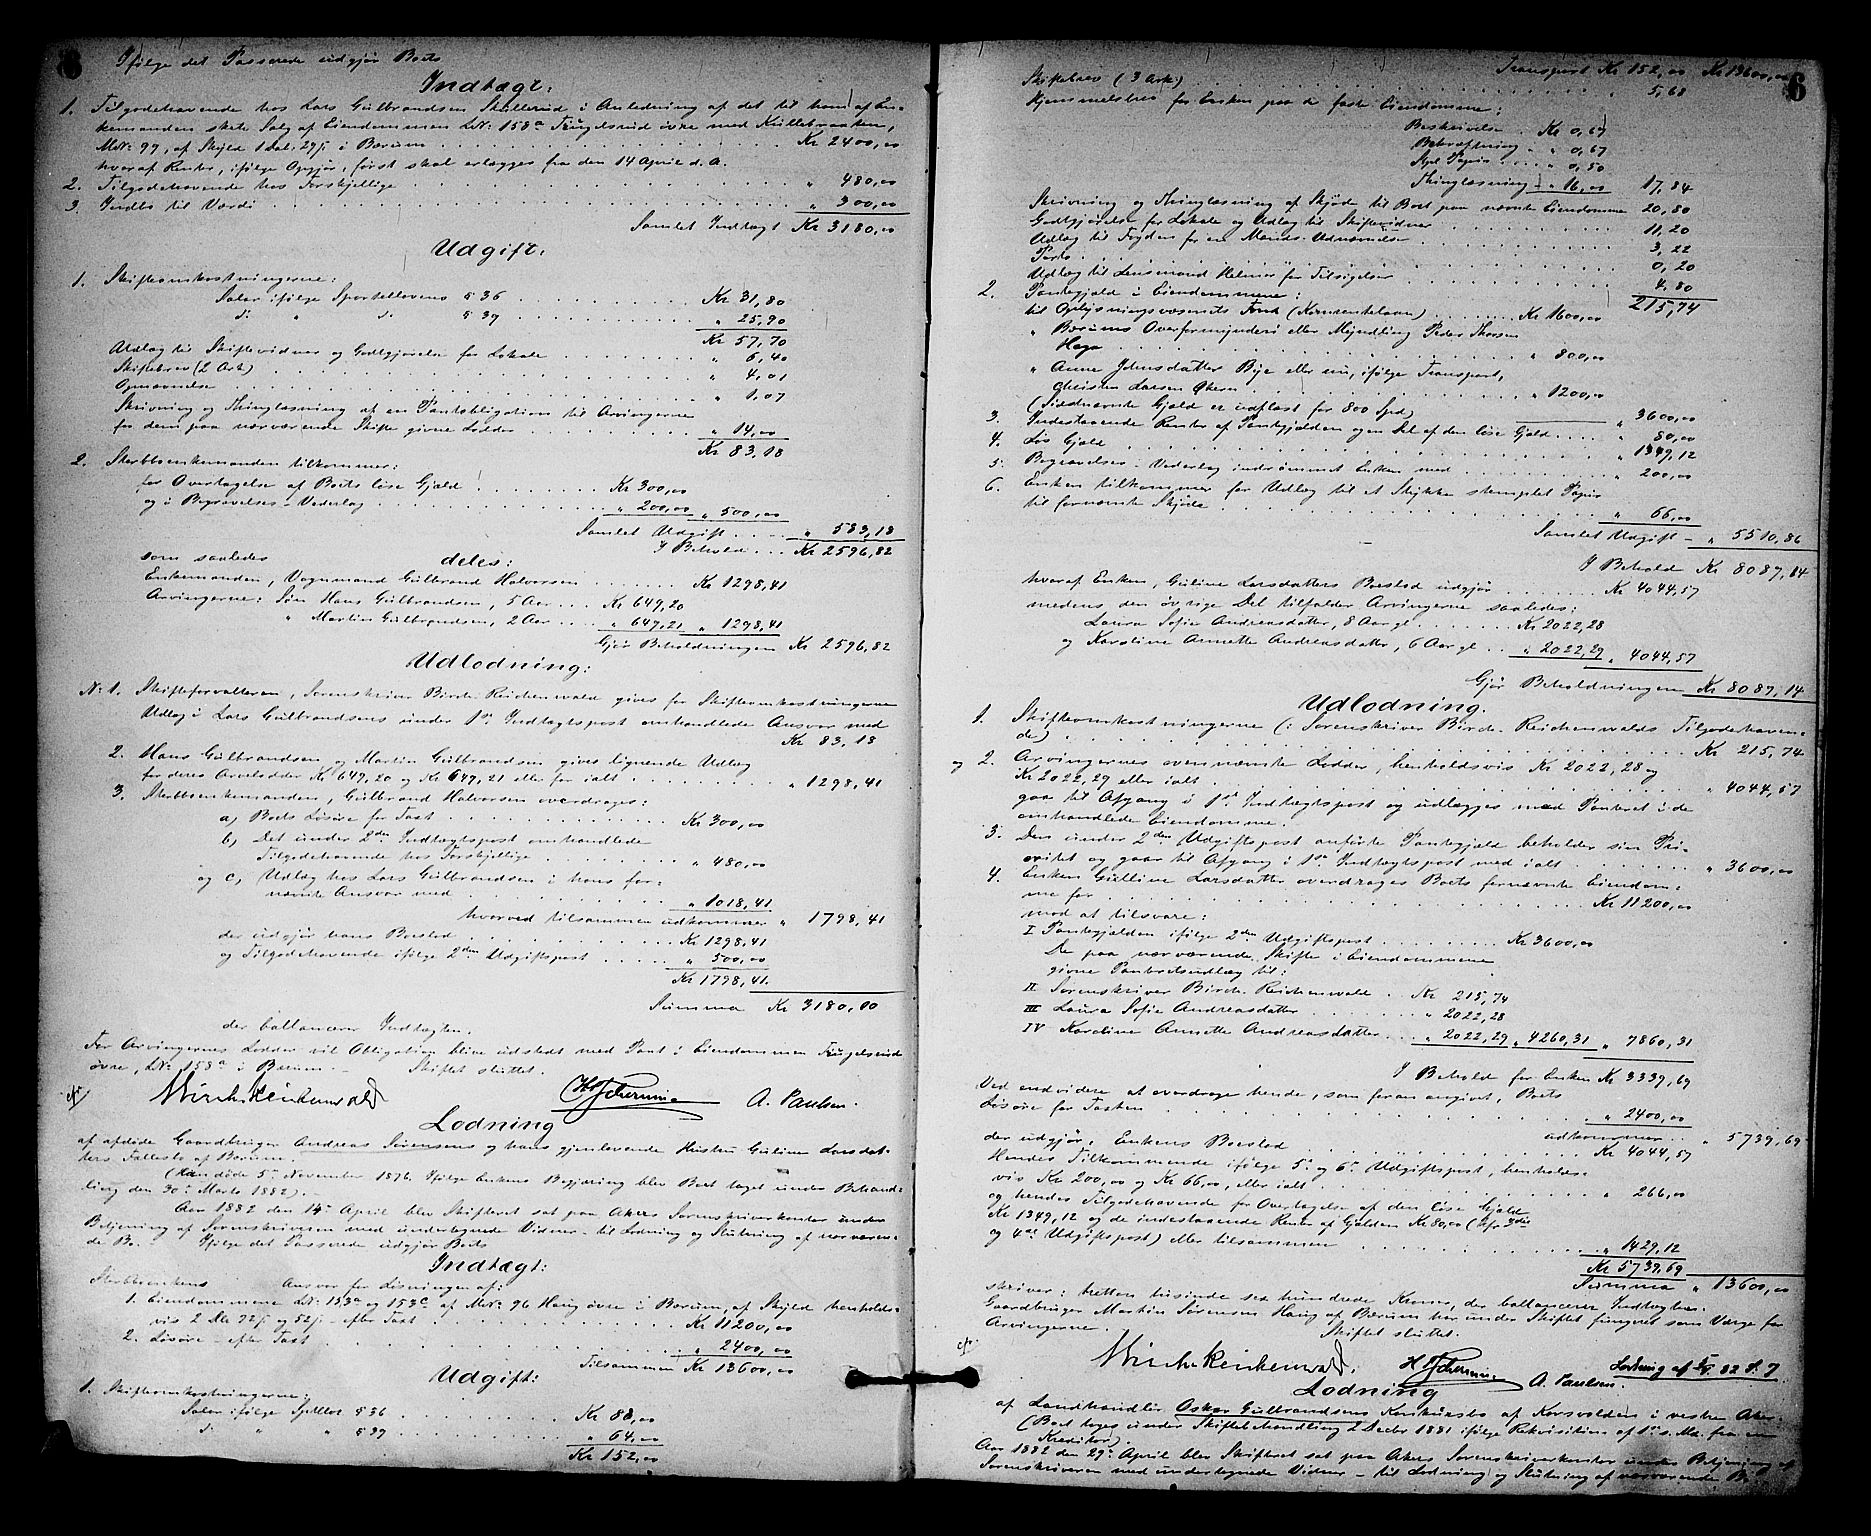 6
Ifølge det Passerede udgjør Boets
Indtægt:
1. Tilgodehavende hos Lars Gulbrandsen Skullerud i Anledning af det til ham af En-
kemanden skete Salg af Eiendommen LNr. 158a Trugelsrud øvre med Kullebraaten,
MNr. 97, af Skyld 1 Dal. 29 ƒ i Bærum . . . Kr 2400,00
hvoraf Renter, ifølge Opgjør, først skal erlægges fra den 14 April d. A.
2. Tilgodehavende hos Forskjellige . . . " 480,00
3. Indbo til Værdi . . . " 300,00
Samlet Indtægt Kr 3180,00
Udgift:
1. Skifteomkostningerne:
Salær ifølge Sportellovens § 36 . . . Kr 31,80
d: " d: § 39 . . . " 25,90
Kr 57,70
Udlæg til Skiftevidner og Godtgjørelse for Lokale . . . " 6,40
Skiftebrev (2 Ark) . . . " 4,01
Opnævnelse . . . " 1,07
Skrivning og Thinglæsning af en Pantobligation til Arvingerne
for dem paa nærværende Skifte givne Lodder . . . " 14,00
Kr 83,18
2. Sterbboenkemanden tilkommer:
for Overtagelse af Boets løse Gjæld . . . Kr 300,00
og i Begravelses-Vederlag . . . " 200,00 " 500,00
Samlet Udgift . . . " 583,18
I Behold . . . Kr 2596,82
som saaledes deles:
Enkemanden, Vognmand Gulbrand Halvorsen . . . Kr 1298,41
Arvingerne: Søn Hans Gulbrandsen, 5 Aar . . . Kr 649,20
" Martin Gulbrandsen, 2 Aar . . . " 649,21 " 1298,41
Gjør Beholdningen Kr 2596,82
Udlodning:
No 1. Skifteforvalteren, Sorenskriver Birch-Reichenwald gives for Skifteomkostningerne
Udlæg i Lars Gulbrandsens under 1ste Indtægtspost omhandlede Ansvar med
Kr 83,18
2. Hans Gulbrandsen og Martin Gulbrandsen gives lignende Udlæg
for deres Arvelodder Kr 649,20 og Kr 649,21 eller for ialt . . . " 1298,41
3. Sterbboenkemanden, Gulbrand Halvorsen overdrages:
a, Boets Løsøre for Taxt . . . Kr 300,00
b, Det under 2den Indtægtspost omhandlede
Tilgodehavende hos Forskjellige . . . " 480,00
og c, Udlæg hos Lars Gulbrandsen i hans for-
nævnte Ansvar med . . . " 1018,41
hvorved tilsammen udkommer " 1798,41
der udgjør hans Boeslod . . . Kr 1298,41
og Tilgodehavende ifølge 2den Udgiftspost . . . " 500,00
Kr 1798,41
Summa Kr 3180,00
der ballancerer Indtægten.
For Arvingernes Lodder vil Obligation blive udstedt med Pant i Eiendommen Trugelsrud
øvre, LNr. 158a i Bærum. — Skiftet sluttet.
Birch-Reichenwald H Scheruma A. Paulsen.
Lodning
af afdøde Gaardbruger Andreas Sørensens og hans gjenlevende Hustru Guline Larsdat-
ters Fællesbo af Bærum.
(Han døde 5te November 1876. Ifølge Enkens Begjæring blev Boet taget under Behand-
ling den 30te Marts 1882). —
Aar 1882 den 14de April blev Skifteret sat paa Akers Sorenskriverkontor under
Betjening af Sorenskriveren med undertegnede Vidner — til Lodning og Slutning af nærværen-
de Bo. Ifølge det Passerede udgjør Boets
Indtægt:
Sterbboenkens Ansvar for Løsningen af:
1. Eiendommene LNr. 153a og 153c af MNr. 96 Haug øvre i Bærum, af Skyld henholds-
vis 2 Dlr 72 ƒ og 52 ƒ. — efter Taxt . . . Kr 11200,00
2. Løsøre — efter Taxt . . . " 2400,00
Tilsammen Kr 13600,00
Udgift:
1. Skifteomkostningerne:
Salær ifølge Spltlov § 36 . . . Kr 88,00
d: " " § 39 . . . " 64,00
Kr 152,00
6
Transport Kr 152,00 Kr 13600,00
Skiftebrev (3 Ark) . . . " 5,68
Hjemmelsbrev for Enken paa de faste Eiendomme:
Beskrivelse . Kr 0,67
Bekræftning " " 0,67
Stpl. Papir . . . " 0,50
Thinglæsning - " 16,00 17,84
Skrivning og Thinglæsning af Skjøde til Boet paa nævnte Eiendomme 20,80
Godtgjørelse for Lokale og Udlæg til Skiftevidner . . . 11,20
Udlæg til Fogden for en Mands-Udnævnelse . . . 3,22
Porto . . . 0,20
Udlæg til Lensmand Helmer for Tilsigelser . . . 4,80
215,74
2. Pantegjæld i Eiendommene:
til Oplysningsvæsenets Fond . . . Kr 1600,00
" Bærums Overformynderi eller Myndling Peder Thorsen
Haga . . . " 800,00
" Anne Johnsdatter Bye eller nu, ifølge Transport,
Christen Larsen Økern . . . " 1200,00
(Sidstnævnte Gjæld er udfløst for 800 Spd) " 3600,00
3. Indestaaende Renter af Pantegjælden og en Del af den løse Gjæld . . . " 80,00
4. Løs Gjæld . . . " 1349,12
5. Begravelses-Vederlag indrømmet Enken med . . . " 200,00
6. Enken tilkommer for Udlæg til et Stykke stemplet Papir
til fornævnte Skjøde . . . " 66,00
Samlet Udgift - " 5510,86
I Behold Kr 8087,14
hvoraf Enken, Guline Larsdatters Boeslod udgjør . . . Kr 4044,57
medens den øvrige Del tilfalder Arvingerne saaledes:
Laura Sofie Andreasdatter, 8 Aar gl. . . . Kr 2022,28
og Karoline Annette Andreasdatter, 6 Aar gl . . . " 2022,29 " 4044,57
Gjør Beholdningen Kr 8089,14
Udlodning.
1. Skifteomkostningerne (: Sorenskriver Birch-Reichenwalds Tilgodehaven-
de) . . . Kr 215,74
og 2. Arvingernes ovennævnte Lodder, henholdsvis Kr 2022,28 og
Kr 2022,29 eller ialt . . . " 4044,57
gaa til Afgang i 1ste Indtægtspost og udlægges med Panteret i de
omhandlede Eiendomme.
3. Den under 2den Udgiftspost anførte Pantegjæld beholder sin Pri-
oritet og gaar til Afgang i 1ste Indtægtspost med ialt . . . " 3600,00
4. Enken Guline Larsdatter overdrages Boets fornævnte Eiendom-
me for . . . Kr 11200,00
mod at tilsvare:
I Pantegjælden ifølge 2den Udgiftspost . . . Kr 3600,00
De paa nærværende Skifte i Eiendommene
givne Pantretsudlæg til:
II Sorenskriver Birch-Reichenwald . . Kr 215,74
III Laura Sofie Andreasdatter . . . " 2022,28
IV Karoline Annette Andreasdatter . . . " 2022,29 " 4260,31 " 7860,31
I Behold for Enken Kr 3339,69
Ved endvidere at overdrage hende, som foran angivet, Boets
Løsøre for Taxten . . . " 2400,00
udkommer . . " 5739,69
der udgjør: Enkens Boeslod . . . Kr 4044,57
Hendes Tilkommende ifølge 5te og 6te Udgiftspost, henholds-
vis Kr 200,00 og Kr 66,00, eller ialt . . . " 266,00
og hendes Tilgodehavende for Overtagelse af den løse Gjæld
Kr 1349,12 og de indestaaende Renter af Gjælden Kr 80,00 (Cfr 3die
og 4de Udgiftspost) eller tilsammen . . . " 1429,12
Kr 5739,69
Summa " 13600,00
skriver: tretten tusinde sex hundrede Kroner, der ballancerer Indtægten.
Gaardbruger Martin Sørensen Haug af Bærum har under Skiftet fungeret som Værge for
Arvingerne. Skiftet sluttet.
Birch-Reichenwald. H Scheruma A. Paulsen.
Lodning
af Landhandler Oskar Gulbrandsens Konkursbo af Korsvolden i vestre Aker.
(Boet toges under Skiftebehandling 2 Decbr 1881 ifølge Rekvisition af 1ste s. Md. fra en
Kreditor).
Aar 1882 den 29de April blev Skifteret sat paa Akers Sorenskriverkontor under Betjening af
Sorenskriveren med undertegnede Vidner — til Lodning og Slutning af nærværende Bo.